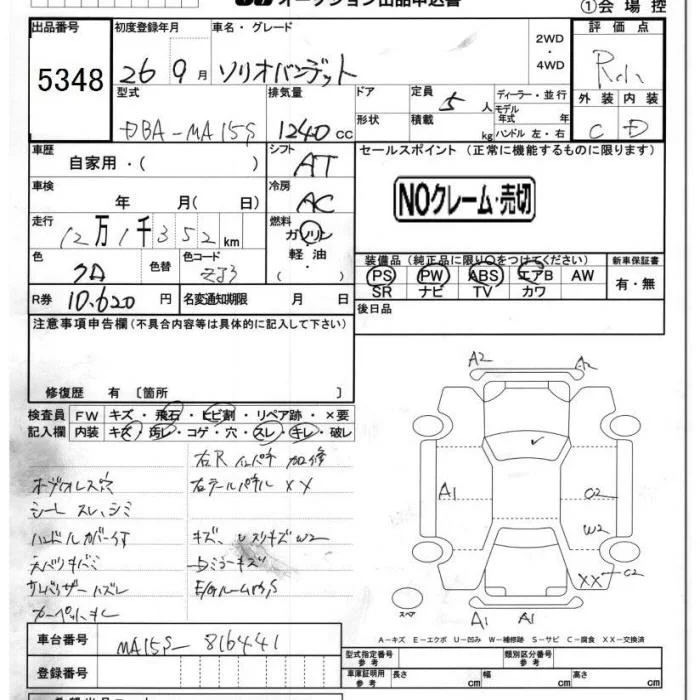 オークション出品申込書
①会場控
出品番号 初度登録年月 車名・グレード 評価点
5348 26 9月 ソリオバンデット 2WD・4WD R
型式 排気量 ドア 定員 5人 ディーラー・並行 外装 内装
モデル年式 年
DBA-MA15S 1240cc 形状 積載 kg ハンドル 左・右 C D
車歴 シフト セールスポイント (正常に機能するものに限ります)
自家用・( ) AT
車検 冷房 NOクレーム・売切
年 月( 日) AC
走行 燃料
12万1千352km ガソリン
軽油
・( )
色 色替 色コード 装備品 (純正品に限り○をつけてください) 新車保証書
クロ ZJ3 PS PW ABS エアB AW 有・無
SR ナビ TV カワ
R券 10,620円 名変通知期限 月 日
後日品
注意事項申告欄(不具合内容等は具体的に記入して下さい)
修復歴 有 〔箇所 〕
検査員 FW キズ・飛石・ヒビ割・リペア跡・×要
記入欄 内装 キズ・汚レ・コゲ・穴・スレ・キレ・破レ
右Rインパネ 加修
右テールパネル XX
シート スレ、シミ
ハンドルカバー付
キズ、W2
天バリキバミ
A2
A1
C2
W2
XX C2
A1 A1
スペア
A-キズ E-エクボ U-凹み W-補修跡 S-サビ C-腐食 XX-交換済
車台番号 MA15S-816441
型式指定番号 参考 類別区分番号 参考
登録番号 車庫証明用 参考 長さ cm 幅 cm 高さ cm